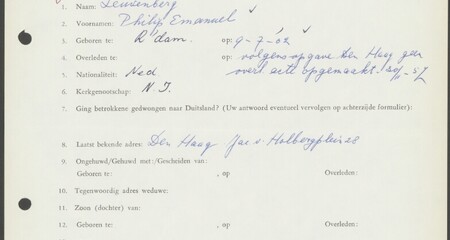 1. Naam: Leuvenberg
2. Voornamen: Philip Emanuel
3. Geboren te: R'dam. op: 9-7-'02
4. Overleden te: - op: volgens opgave Den Haag geen
5. Nationaliteit: Ned overl. acte opgemaakt.
6. Kerkgenootschap: N.I.
7. Ging betrokkene gedwongen naar Duitsland? (Uw antwoord eventueel vervolgen op achterzijde formulier):
8. Laatst bekende adres: Den Haag Jac. v.
9. Ongehuwd/Gehuwd met:/Gescheiden van:
Geboren te: , op Overleden:
10. Tegenwoordig adres weduwe:
11. Zoon (dochter) van:
12. Geboren te: , op Overleden: